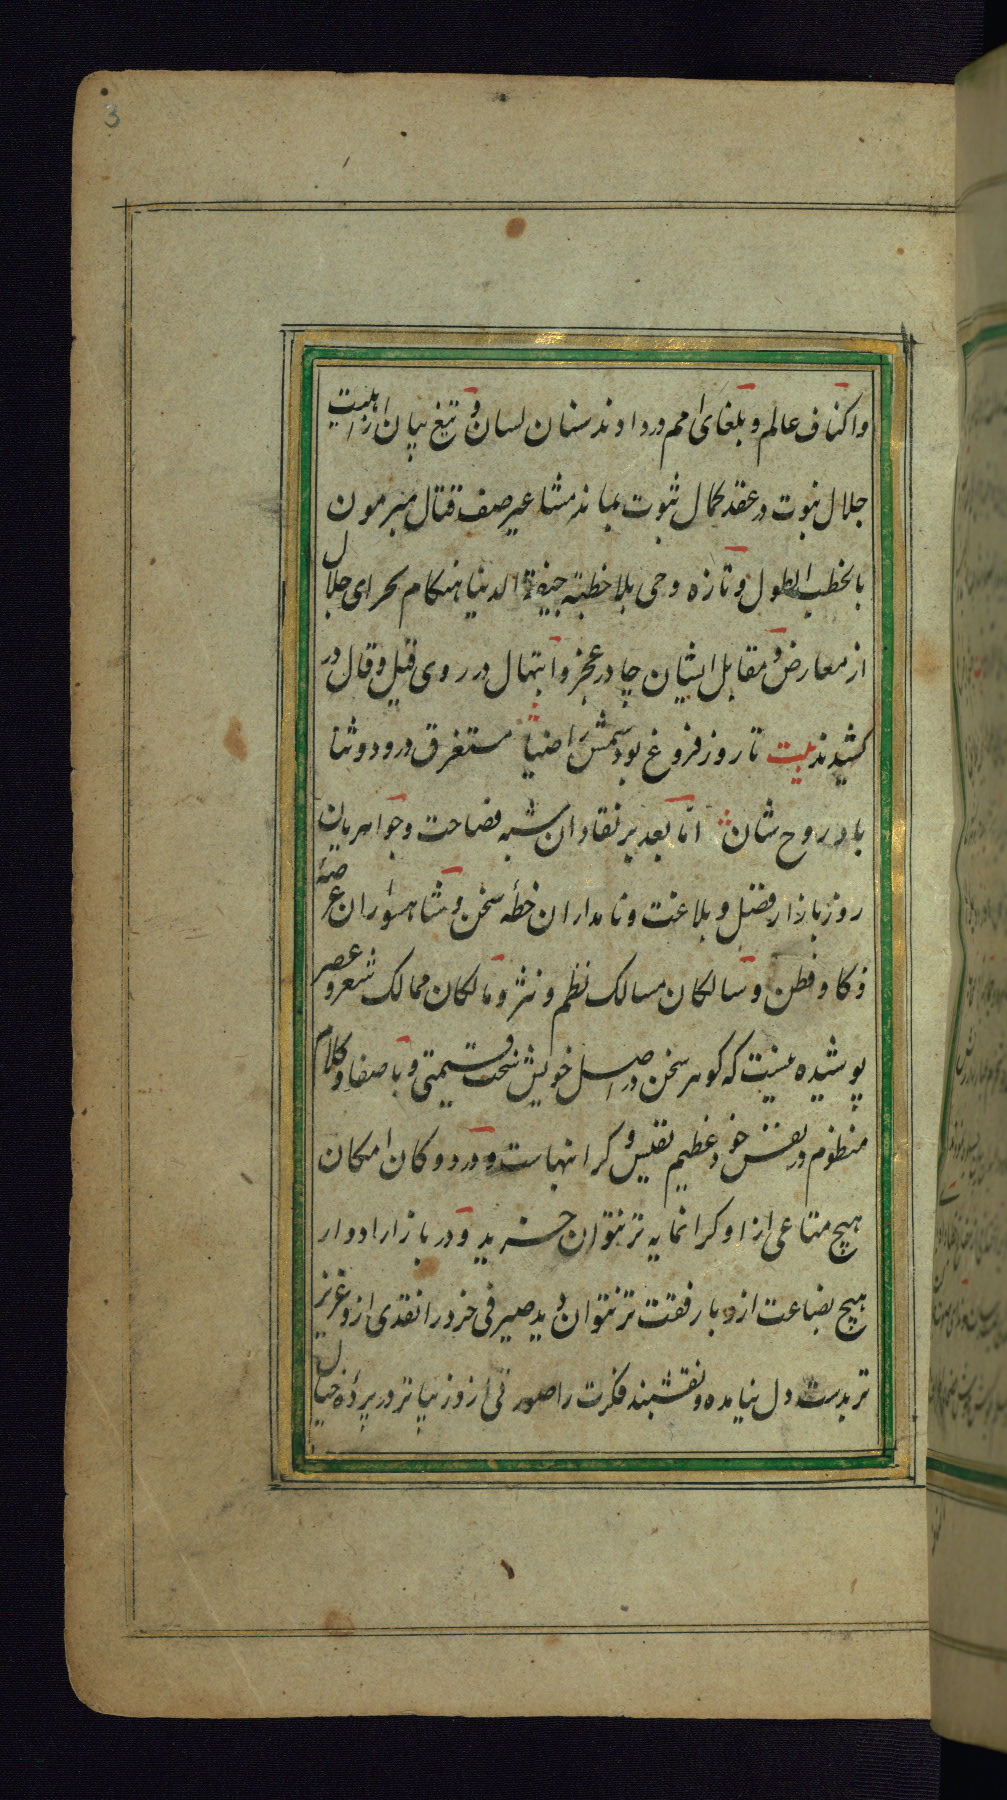 3
واکناف عالم و بلغای امم ورد اوند سنان لسان و تیغ بیان از اهلیت
جلال نبوت در عقد کمال ثبوت بماند مشاعیر صف قتال میرمون
بالخطب الطول و تازه وحی بلا خطبه جیفة الدنیا هنکام بحرای جلال
از معارض و مقابل ایشان چادر عجز و ابتهال در روی قیل و قال در
کشیدند بیت تا روز فروغ بود شمس را ضیا مستغرق درود و ثنا
باد روح شان اما بعد بر نقادان شبه فصاحت و جواهریان
روز بازار فضل و بلاغت و نامداران خطه سخن و شاهسواران عرصه
ذکا و فطن و سالکان مسالک نظم و نثر و مالکان ممالک شعر و عصر
پوشیده نیست که کوهر سخن در اصل خویش سخت قیمتی و با صفا و کلام
منظوم در نفس خود عظیم نفیس و کرانبهاست و در دوکان امکان
هیچ متاعی از او کرانمایه تر نتوان خرید و در بازار ادوار
هیچ بضاعت ازو با رفقت تر نتوان دید صیرفی خرد را نقدی ازو عزیز
تر بدست دل نیامده و نقشبند فکرت را صورتی ازو زیباتر در پرده خیال